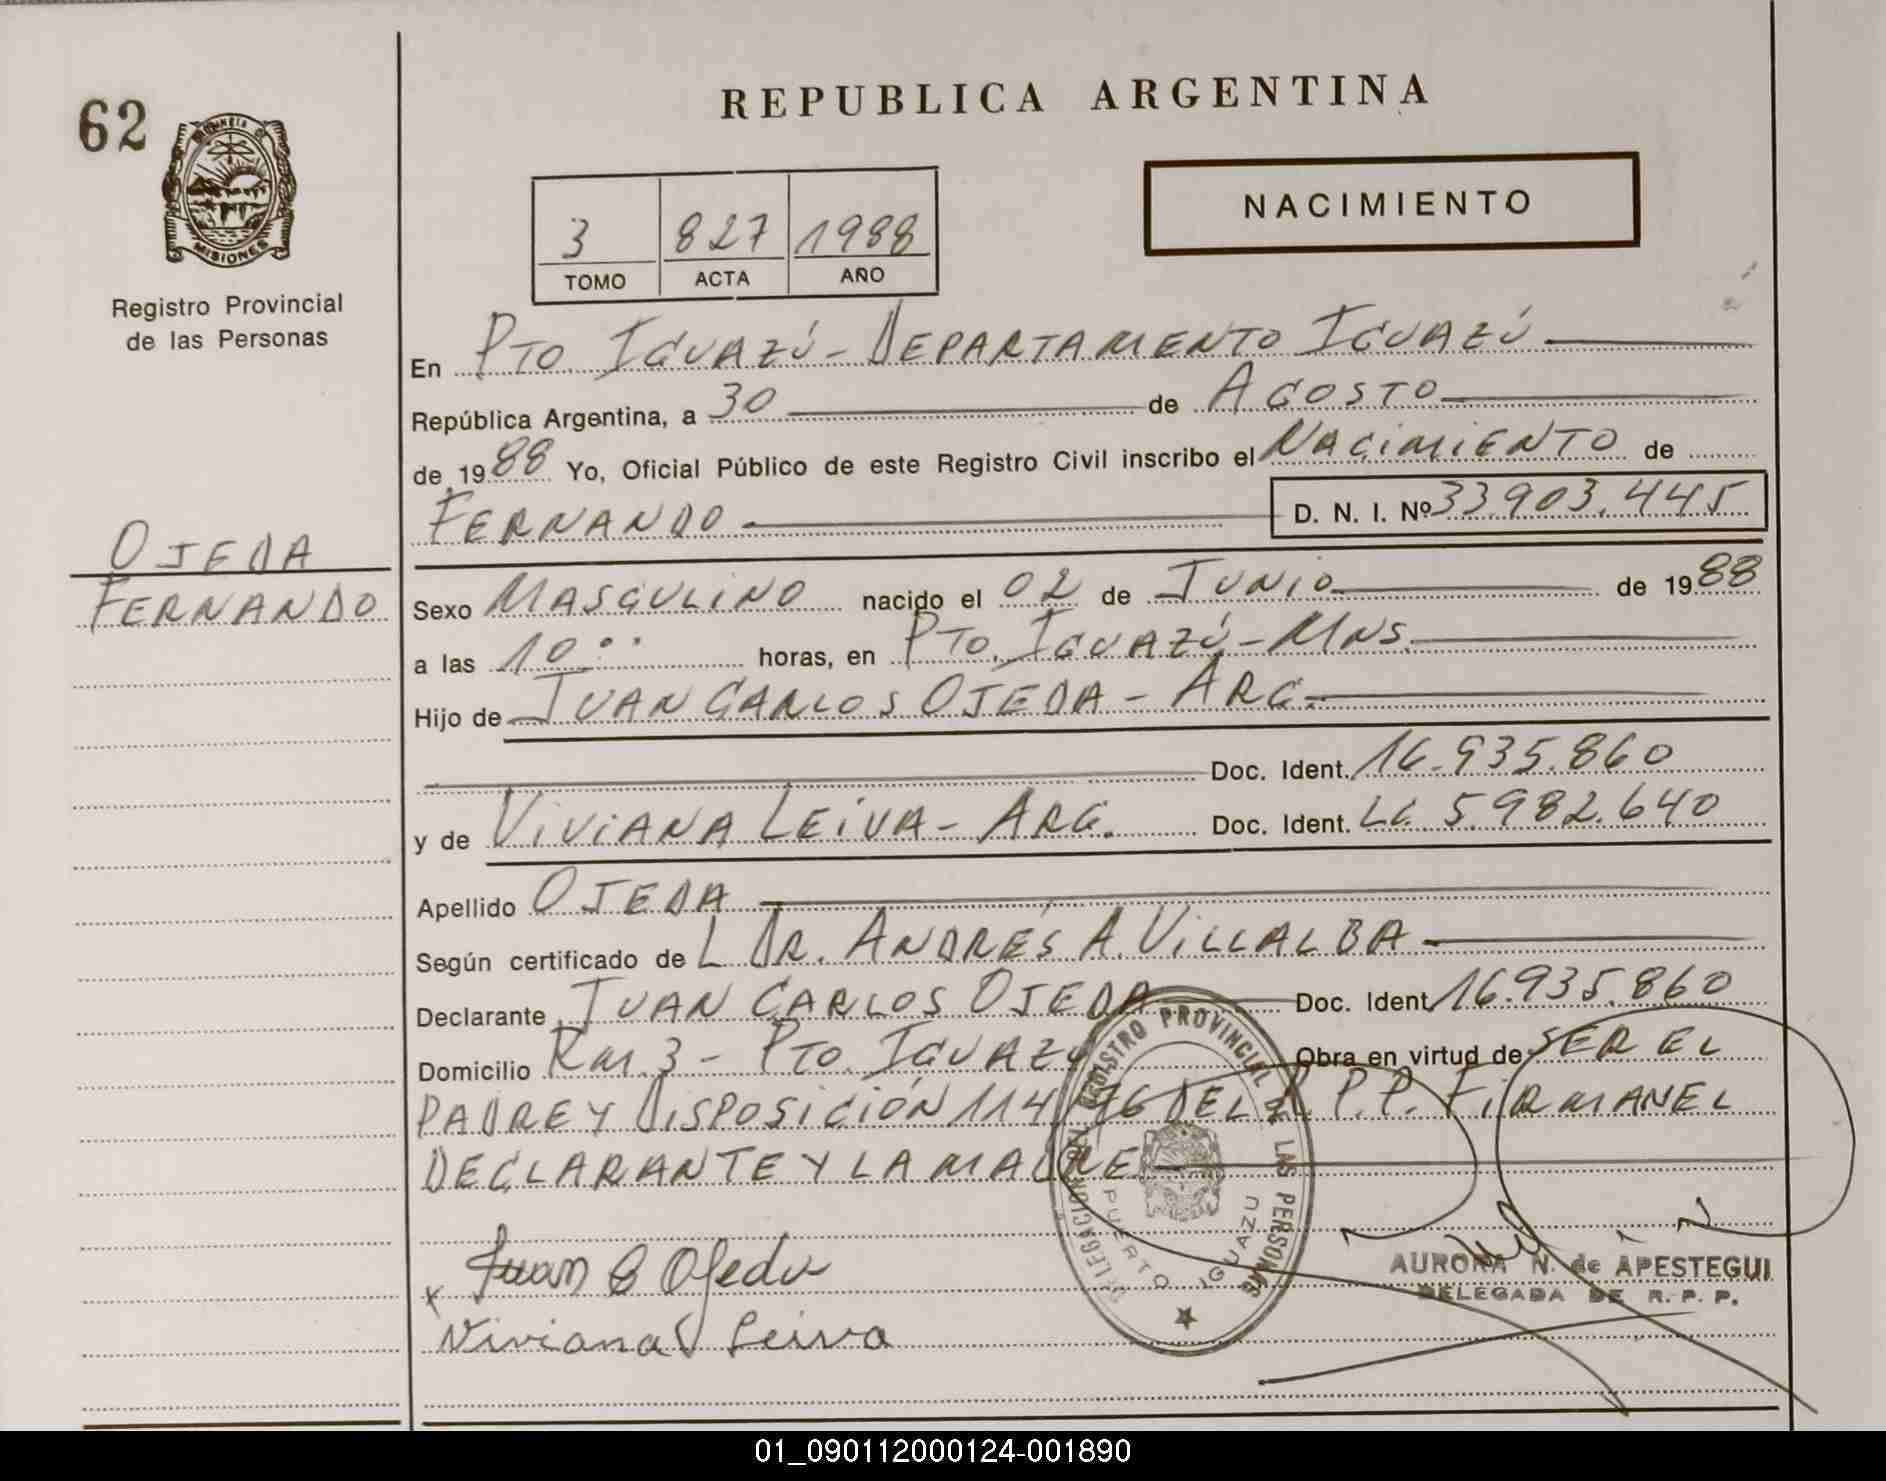 62
PROVINCIA DE
MISIONES
Registro Provincial
de las Personas
OJEDA
FERNANDO
REPUBLICA ARGENTINA
NACIMIENTO
3 827 1988
TOMO ACTA AÑO
En PTO. IGUAZÚ - DEPARTAMENTO IGUAZÚ
República Argentina, a 30 de AGOSTO
de 1988 Yo, Oficial Público de este Registro Civil inscribo el NACIMIENTO de
FERNANDO D. N. I. Nº 33.903.445
Sexo MASCULINO nacido el 02 de JUNIO de 1988
a las 10°° horas, en PTO. IGUAZÚ - MNS.
Hijo de JUAN CARLOS OJEDA - ARG.
Doc. Ident. 16.935.860
y de VIVIANA LEIVA - ARG. Doc. Ident. LC. 5.982.640
Apellido OJEDA
Según certificado de L DR. ANDRÉS A. VILLALBA
Declarante JUAN CARLOS OJEDA Doc. Ident. 16.935.860
Domicilio KM. 3 - PTO. IGUAZU Obra en virtud de SER EL
PADRE Y DISPOSICIÓN 114/76 DEL R.P.P. FIRMAN EL
DECLARANTE Y LA MADRE
REGISTRO PROVINCIAL DE LAS PERSONAS
DELEGACION
PUERTO IGUAZU
Juan C Ojeda
x
Viviana Leiva
AURORA N. de APESTEGUI
DELEGADA DE R. P. P.
01_090112000124-001890